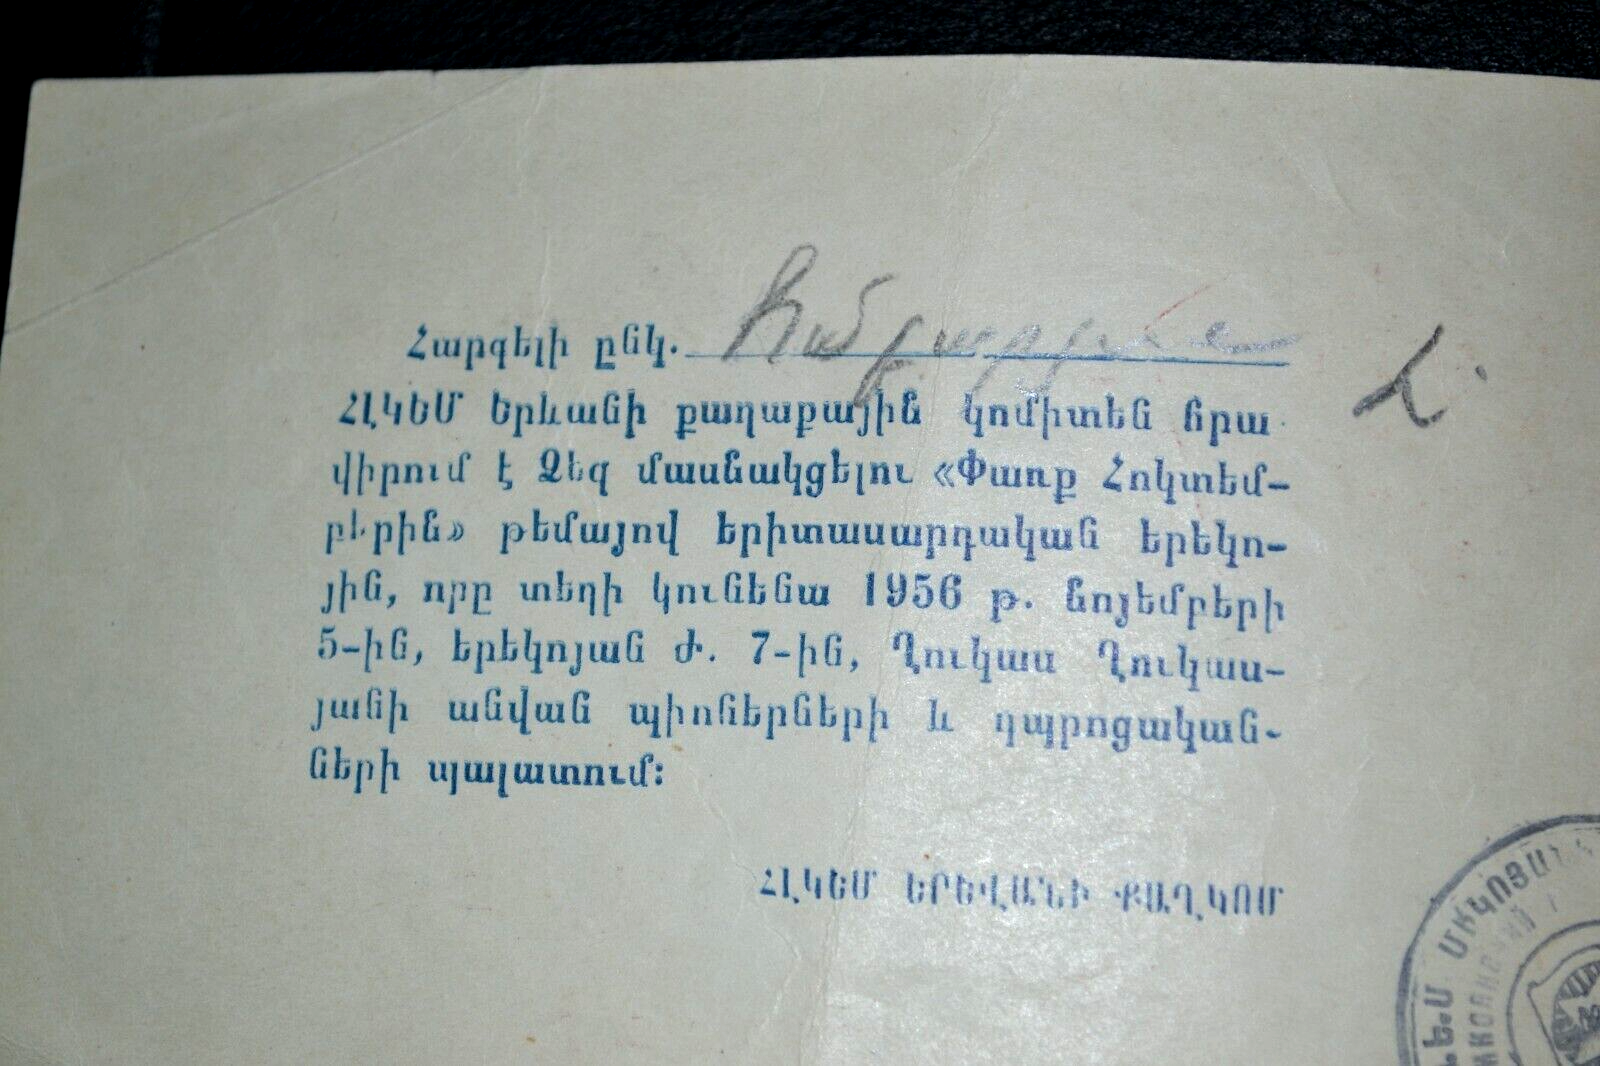 Հարգելի ընկ.
ՀԼԿԵՄ Երևանի քաղաքային կոմիտեն հրա
վիրում է Ձեզ մասնակցելու «Փառք Հոկտեմ-
բերին» թեմայով երիտասարդական երեկո-
յին, որը տեղի կունենա 1956 թ. նոյեմբերի
5-ին, երեկոյան ժ. 7-ին, Ղուկաս Ղուկաս-
յանի անվան պիոներների և դպրոցական-
ների պալատում։
ՀԼԿԵՄ ԵՐԵՎԱՆԻ ՔԱՂԿՈՄ
ՄԻԿՈՅԱՆ